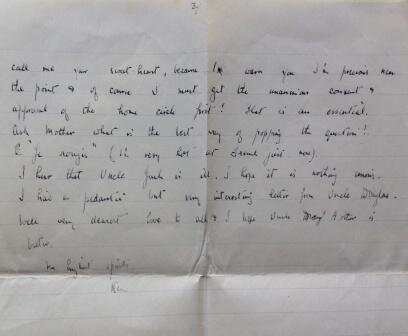 3/
call me your sweet heart, because I'm warn you I'm precious near
the point & of course I must get the unanimous consent &
approval of the home circle first! that is an essential.
Ask Mother what is the best way of popping the question!.
"Je rougis" (I'm very hot at French just now).
I hear that Uncle Jack is ill. I hope it is nothing serious.
I had a pedantic but very interesting letter from Uncle Douglas.
Well very dearest love to all & I hope Uncle is
better.
In highest spirits
Ken